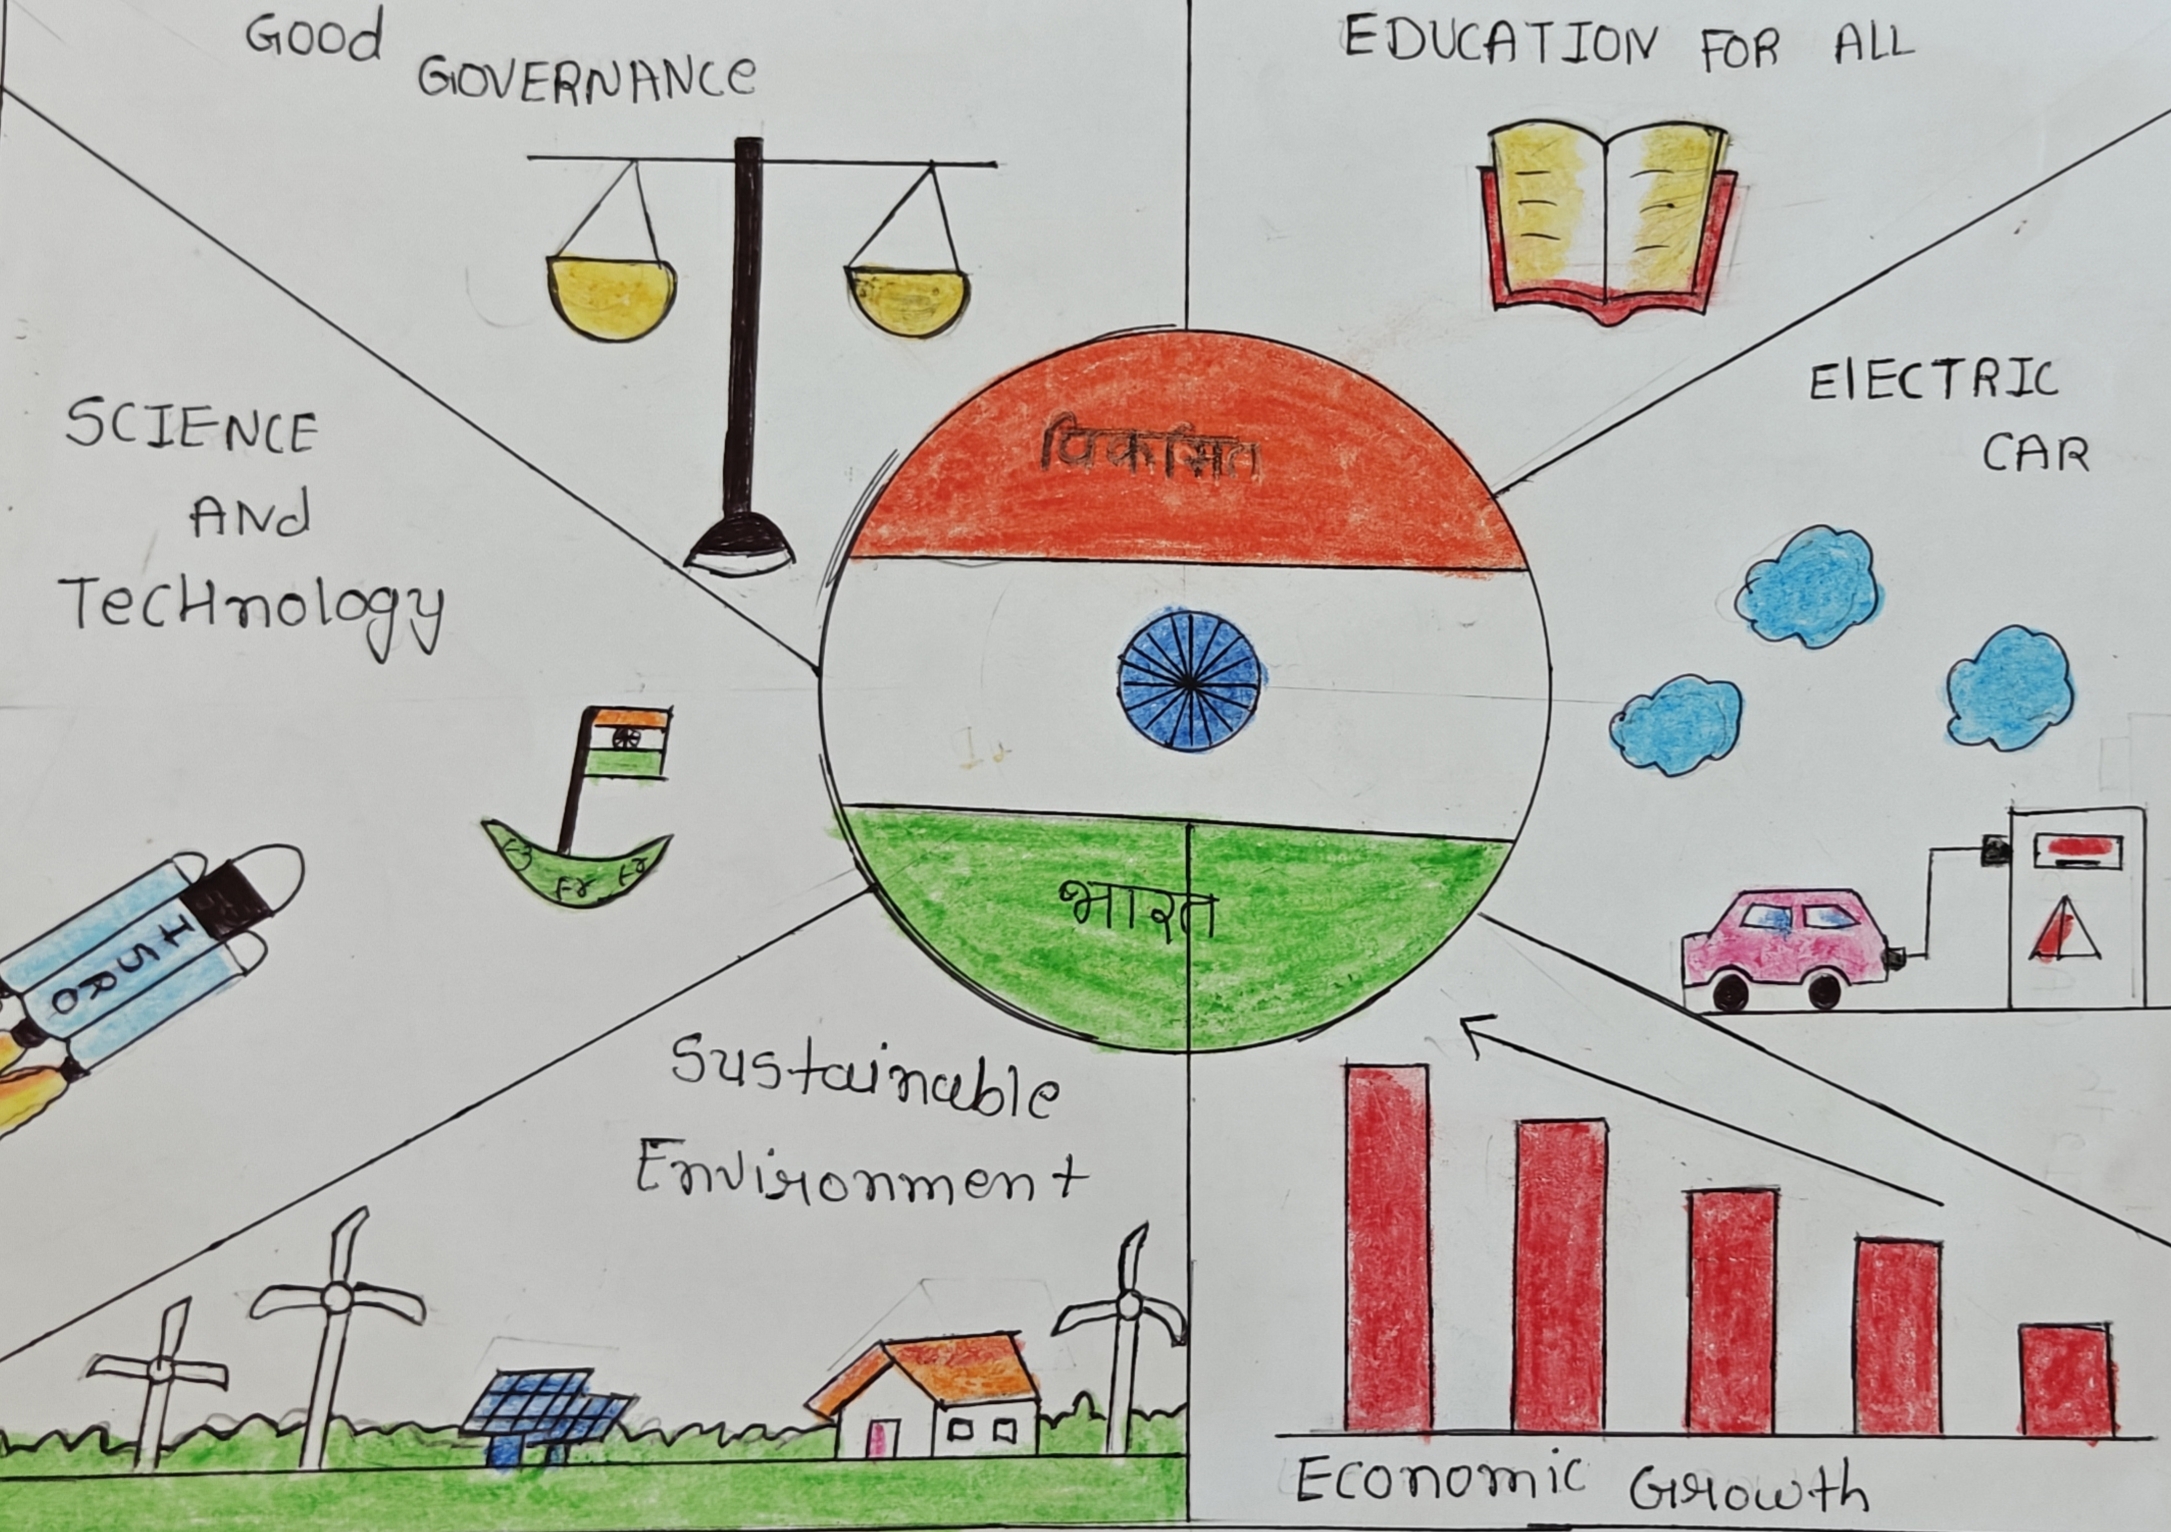 GOOD
GOVERNANCE
EDUCATION FOR ALL
SCIENCE
AND
TECHnology
ElECTRIC
CAR
विकसित
भारत
ISRO
Sustainable
Environment
Economic Growth